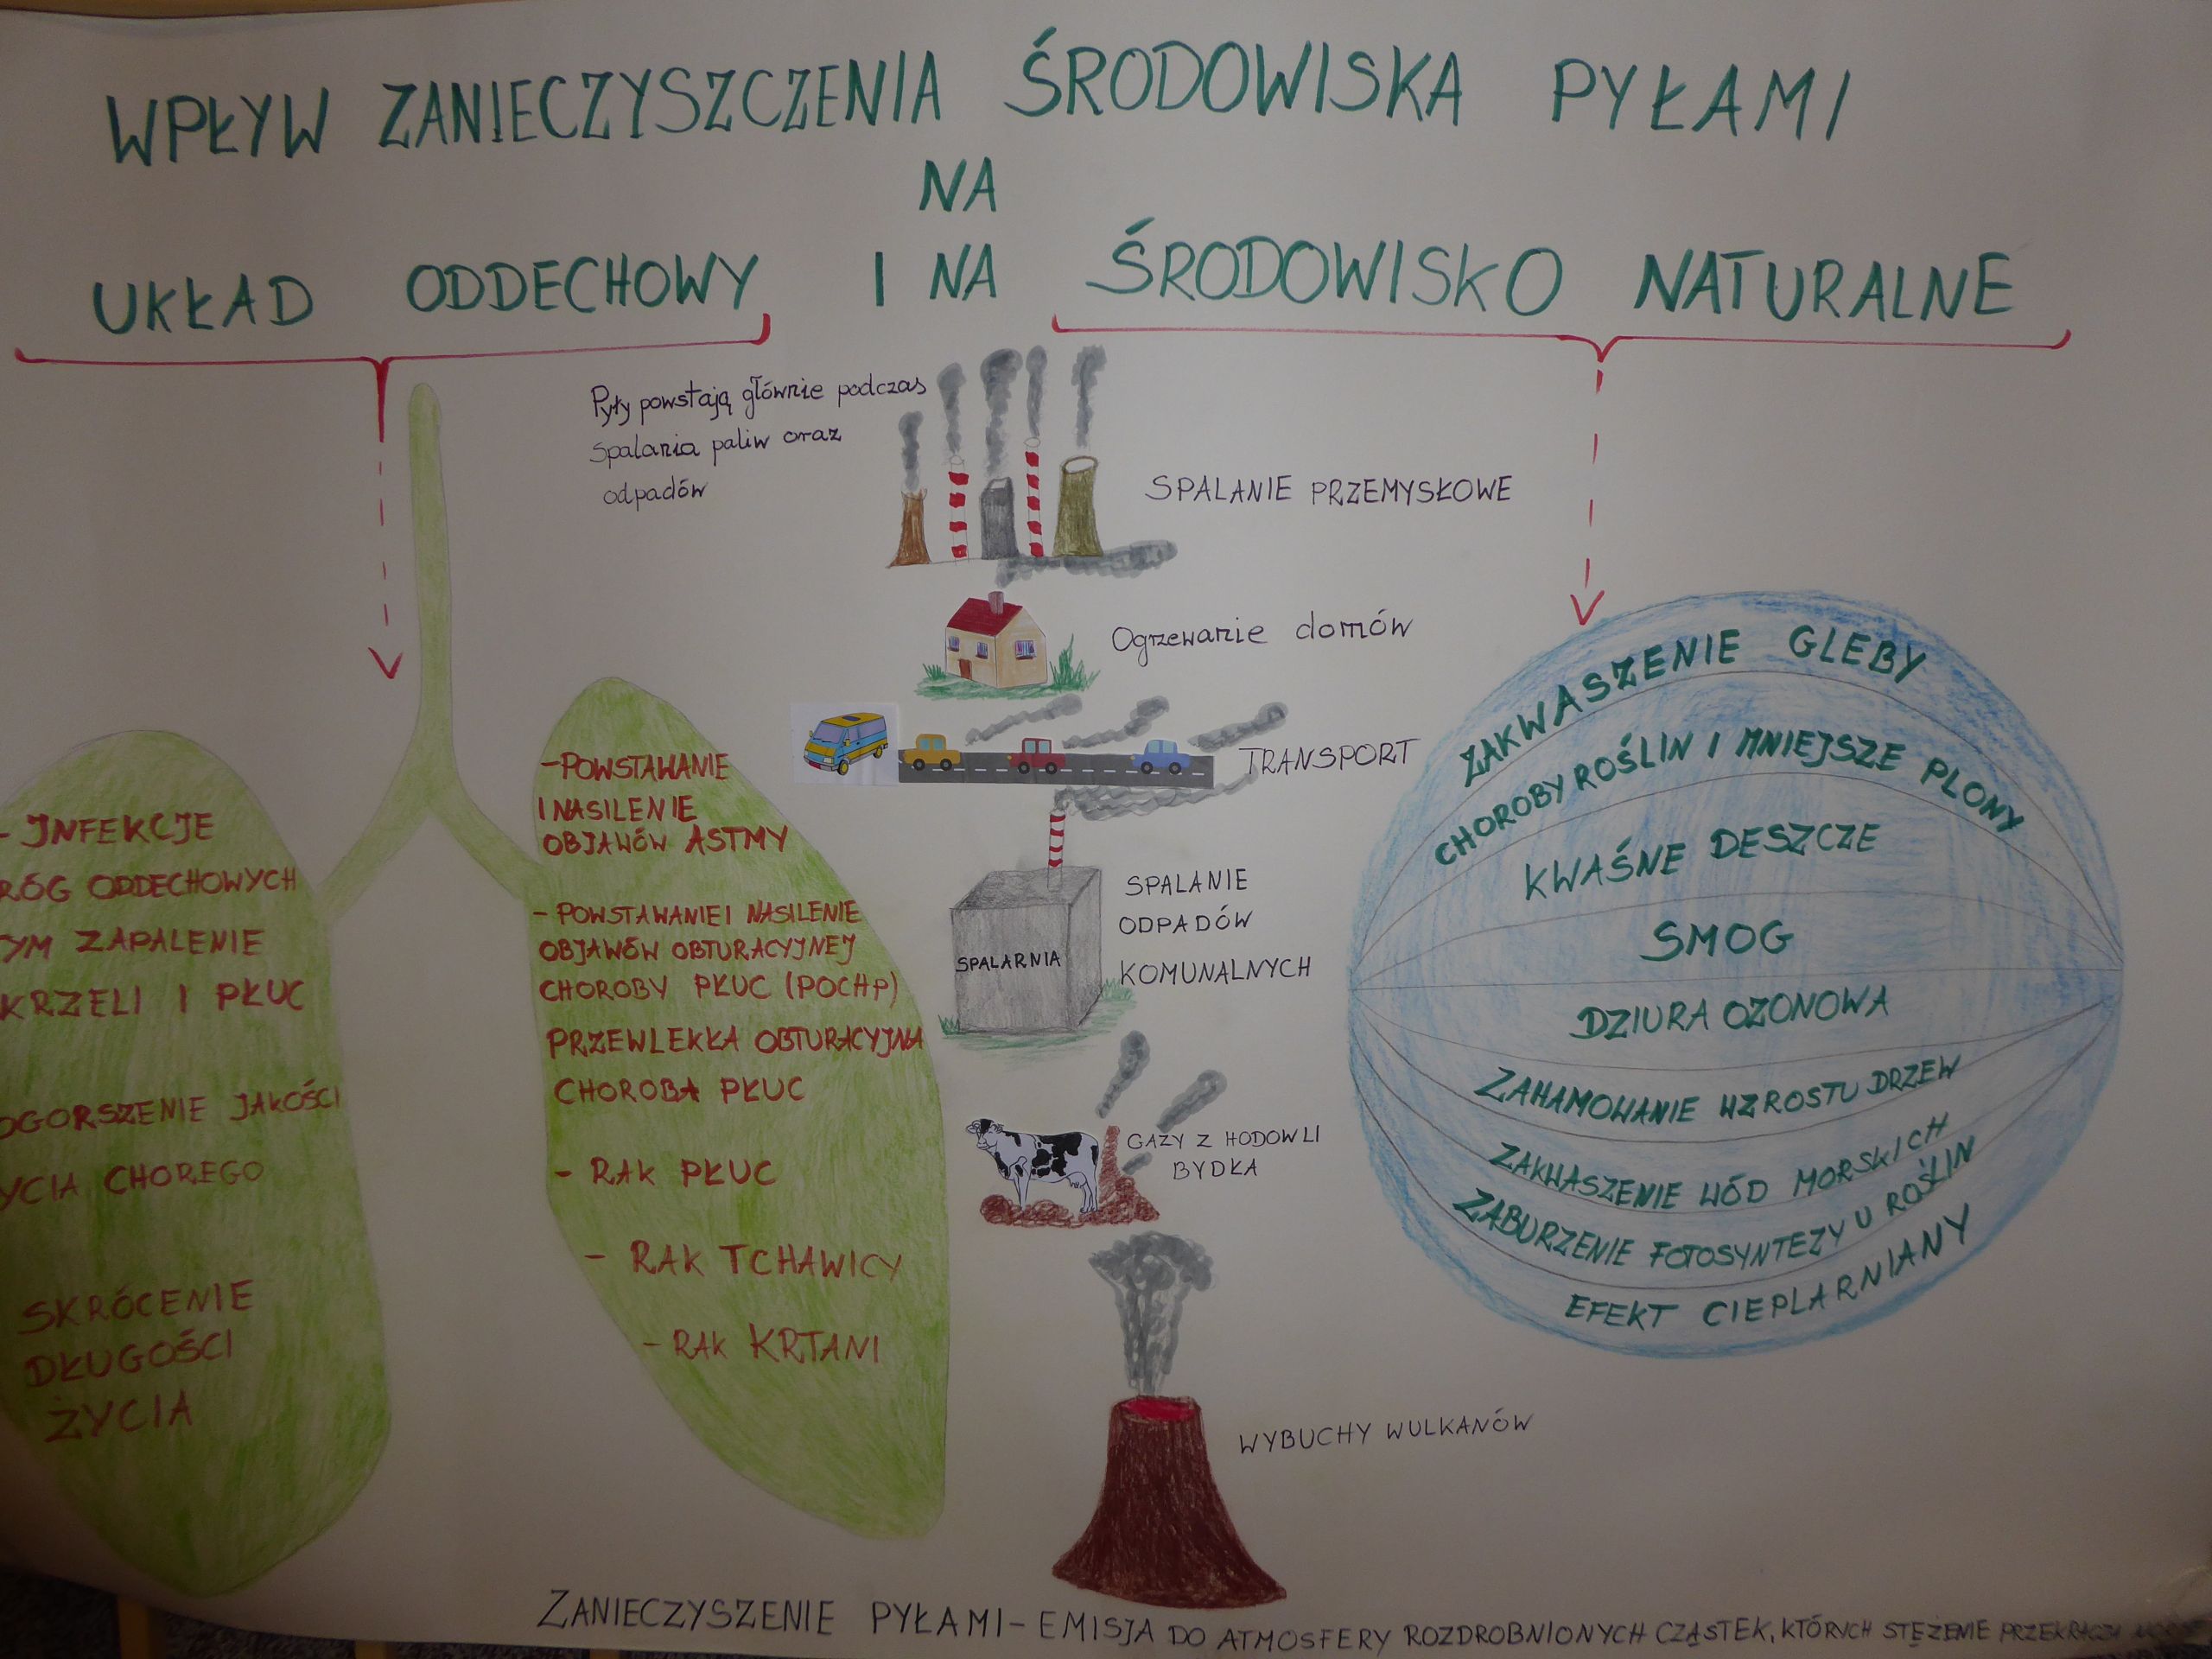 WPŁYW ZANIECZYSZCZENIA ŚRODOWISKA PYŁAMI
NA
UKŁAD ODDECHOWY I NA ŚRODOWISKO NATURALNE
Pyły powstają głównie podczas
spalania paliw oraz
odpadów
SPALANIE PRZEMYSŁOWE
Ogrzewanie domów
TRANSPORT
SPALANIE
ODPADÓW
KOMUNALNYCH
SPALARNIA
GAZY Z HODOWLI
BYDŁA
WYBUCHY WULKANÓW
- INFEKCJE
RÓG ODDECHOWYCH
YM ZAPALENIE
KRZELI I PŁUC
OGORSZENIE JAKOŚCI
YCIA CHOREGO
SKRÓCENIE
DŁUGOŚCI
ŻYCIA
-POWSTAWANIE
I NASILENIE
OBJAWÓW ASTMY
- POWSTAWANIE I NASILENIE
OBJAWÓW OBTURACYJNEJ
CHOROBY PŁUC (POCHP)
PRZEWLEKŁA OBTURACYJNA
CHOROBA PŁUC
- RAK PŁUC
- RAK TCHAWICY
- RAK KRTANI
ZAKWASZENIE GLEBY
CHOROBY ROŚLIN I MNIEJSZE PLONY
KWAŚNE DESZCZE
SMOG
DZIURA OZONOWA
ZAHAMOWANIE WZROSTU DRZEW
ZAKWASZENIE WÓD MORSKICH
ZABURZENIE FOTOSYNTEZY U ROŚLIN
EFEKT CIEPLARNIANY
ZANIECZYSZENIE PYŁAMI - EMISJA DO ATMOSFERY ROZDROBNIONYCH CZĄSTEK, KTÓRYCH STĘŻENIE PRZEKRACZA